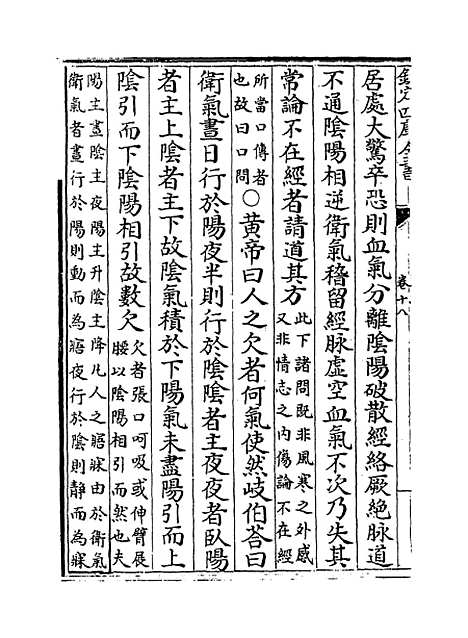 欽定四庫全書
卷十八
居處大驚卒恐則血氣分離陰陽破散經絡厥絶脉道
不通陰陽相逆衛氣稽留經脉虛空血氣不次乃失其
常論不在經者請道其方
此下諸問既非風寒之外感
又非情志之内傷論不在經
所當口傳者
也故曰口問
○黄帝曰人之欠者何氣使然岐伯荅曰
衛氣晝日行於陽夜半則行於陰陰者主夜夜者臥陽
者主上陰者主下故陰氣積於下陽氣未盡陽引而上
陰引而下陰陽相引故數欠
欠者張口呵吸或伸臂展
腰以陰陽相引而然也夫
陽主晝陰主夜陽主升陰主降凡人之寤寐由於衛氣
衛氣者晝行於陽則動而為寤夜行於陰則静而為寐